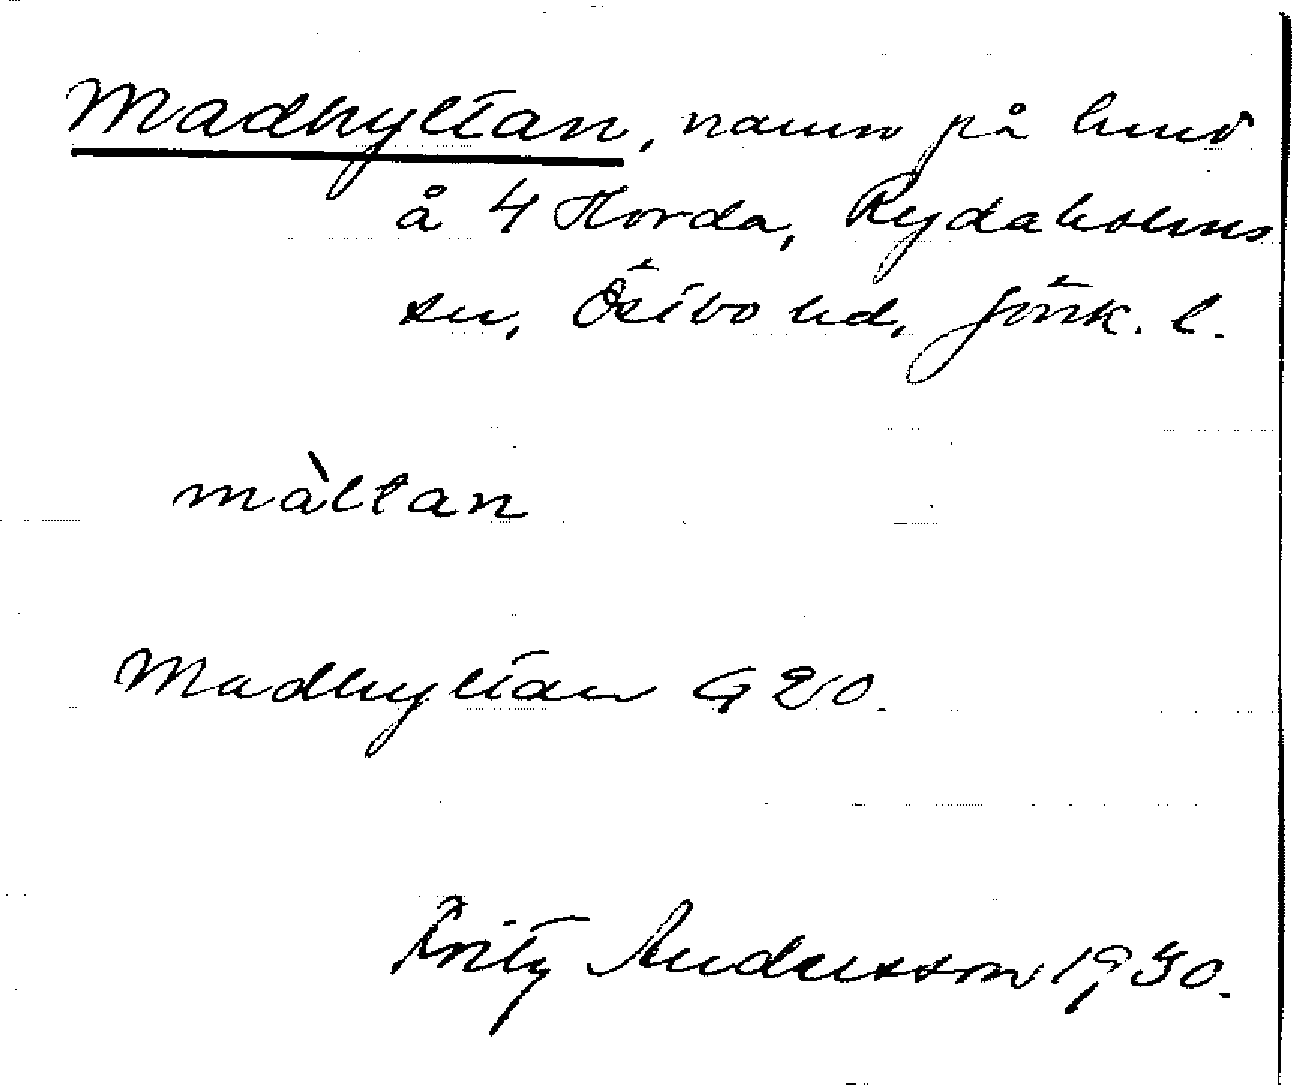 Madhyltan, namn på hmd
å 4 Horda, Rydaholms
sn, Östbo hd, Jönk. l.
màltan
Madhyltan G 20.
Fritz Andersson 1930.